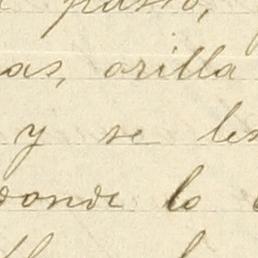 pasto,
as, orilla
y se les
donde lo